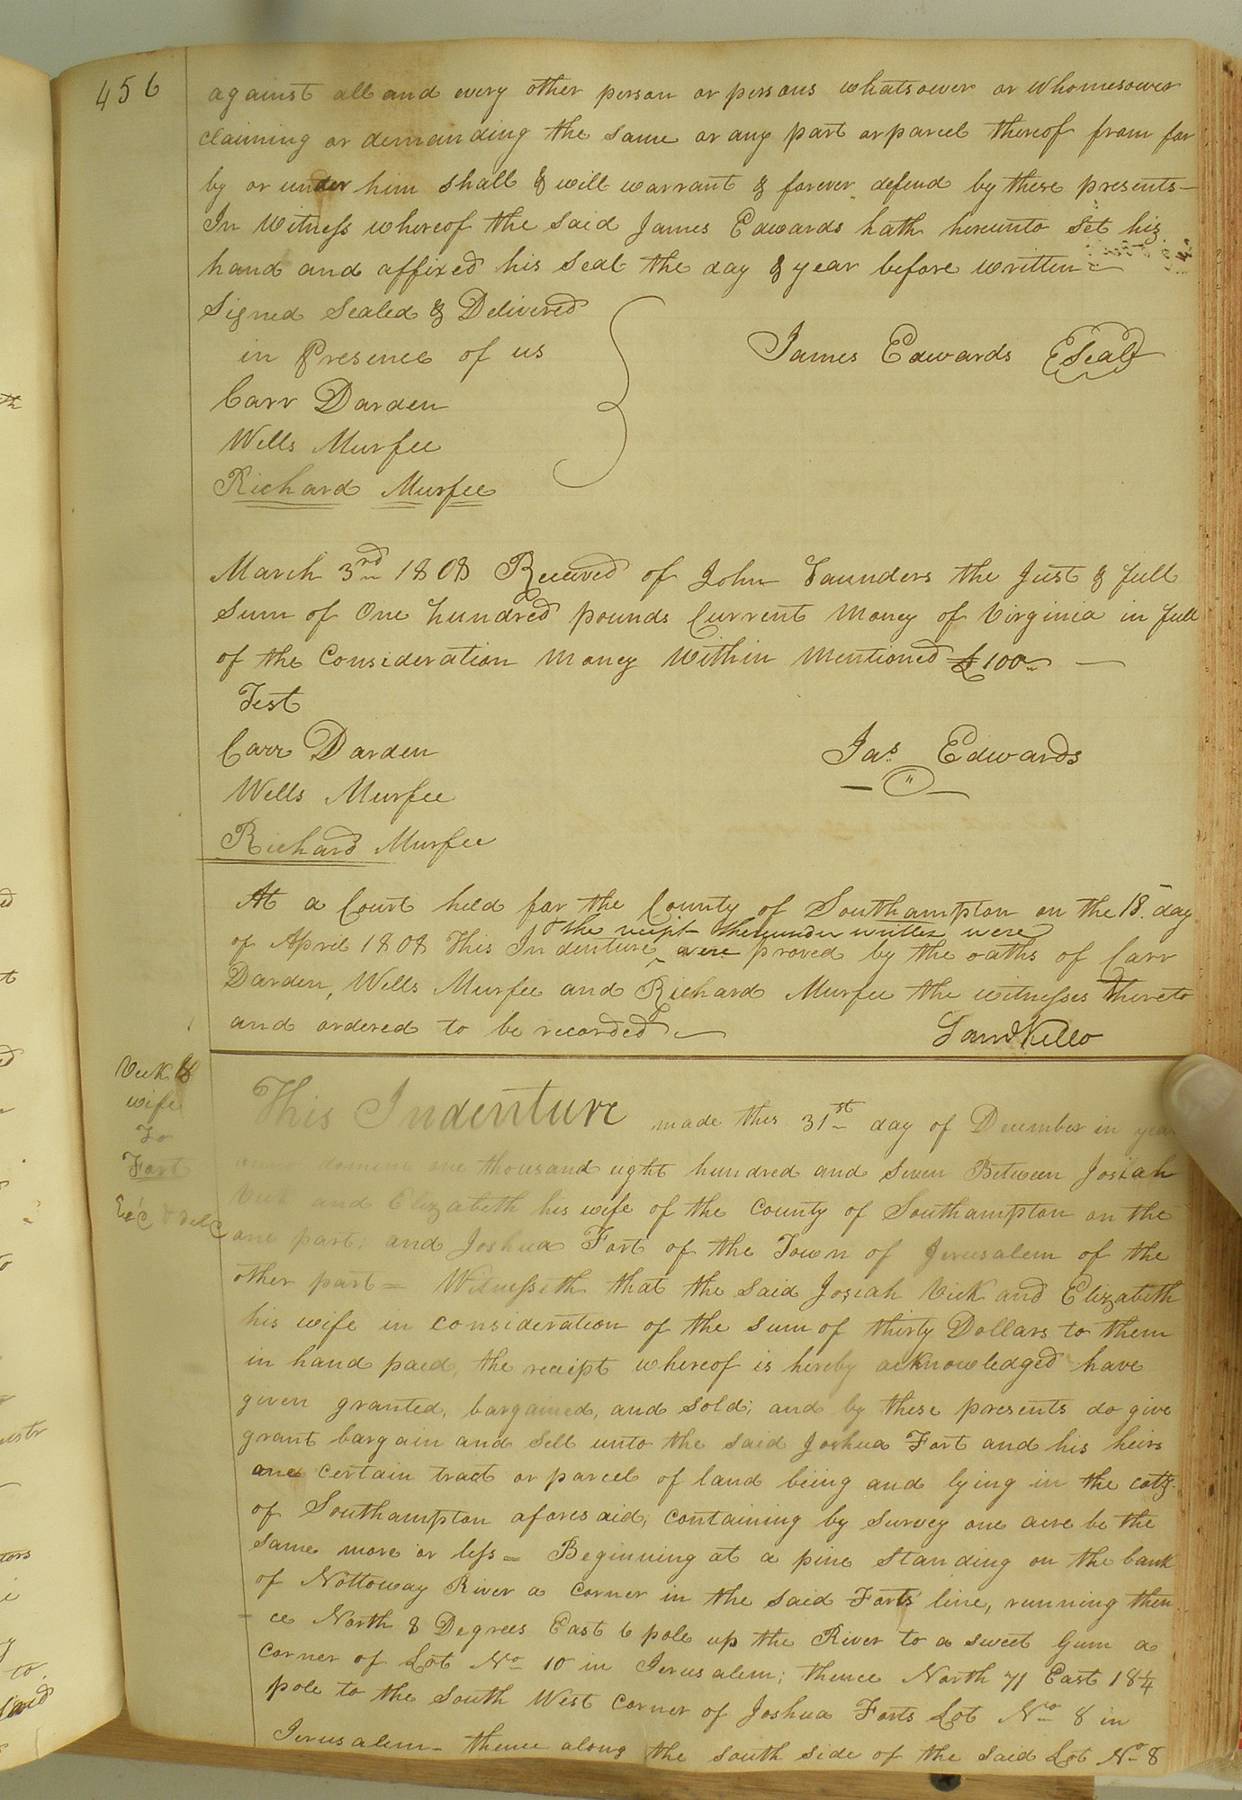 456
against all and every other person or persons whatsoever or Whomesoever
claiming or demanding the same or any part or parcel thereof from for
by or under him shall & will warrant & forever defend by these presents—
In Witness whereof the said James Edwards hath hereunto set his
hand and affixed his Seal the day & year before written—
Signed Sealed & Delivered
in Presence of us
James Edwards Seal
Carr Darden
Wells Murfee
Richard Murfee
March 3rd 1808 Received of John Saunders the Just & full
Sum of One hundred pounds Current Money of Virginia in full
of the Consideration Money Within Mentioned £100 —
Test
Carr Darden
Jas Edwards
Wells Murfee
Richard Murfee
At a Court held for the County of Southampton on the 18 day
& the receipt thereunder written were
of April 1808 This Indenture were proved by the oaths of Carr
Darden, Wells Murfee and Richard Murfee the witnesses thereto
and ordered to be recorded
Saml Kello
Vick &
wife
To
Fort
This Indenture made this 31st day of December in year
domini one thousand eight hundred and seven Between Josiah
Vick and Elizabeth his wife of the County of Southampton on the
one part; and Joshua Fort of the Town of Jerusalem of the
other part = Witnesseth that the said Josiah Vick and Elizabeth
his wife in consideration of the sum of thirty Dollars to them
in hand paid, the receipt whereof is hereby acknowledged have
given granted, bargained, and sold; and by these presents do give
grant bargain and sell unto the said Joshua Fort and his heirs
one certain tract or parcel of land being and lying in the coty
of Southampton aforesaid, containing by survey one acre be the
same more or less = Beginning at a pine standing on the bank
of Nottoway River a corner in the said Forts line, running then
ce North 8 Degrees East 6 pole up the River to a sweet Gum a
corner of Lot No 10 in Jerusalem; thence North 71 East 18¼
pole to the South West corner of Joshua Forts Lot No 8 in
Jerusalem— thence along the south side of the said Lot No 8